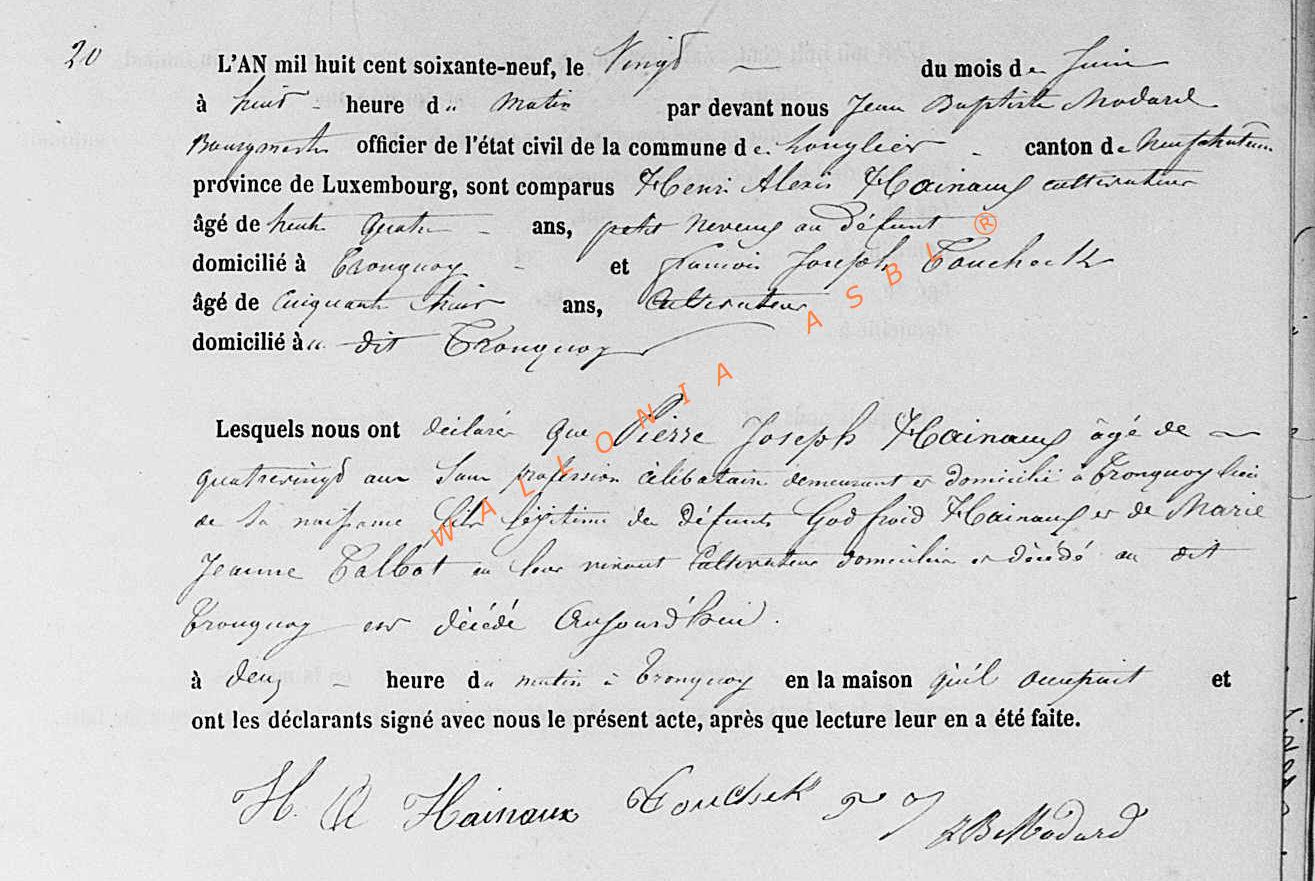 20
L'AN mil huit cent soixante-neuf, le Vingt du mois de Juin
à huit heure du matin par devant nous Jean Baptiste Modard
Bourgmestre officier de l'état civil de la commune de Longlier canton de Neufchateau
province de Luxembourg, sont comparus Henri Alexis Hainaux cultivateur
âgé de trente quatre ans, petit neveux au défunt
domicilié à Tronquoy et francois Joseph Touchèck
âgé de Cinquante huit ans, Cultivateur
domicilié au dit Tronquoy
Lesquels nous ont déclaré que Pierre Joseph Hainaux âgé de
quatrevingt ans sans profession célibataire demeurant et domicilié à Tronquoy lieu
de sa naissance fils légitime des défunts Godfroid Hainaux et de Marie
Jeanne Talbot en leur vivant Cultivateur domiciliés et décédé au dit
Tronquoy est décédé Aujourd'hui.
à deux heure du matin à Tronquoy en la maison qu'il occupait et
ont les déclarants signé avec nous le présent acte, après que lecture leur en a été faite.
H. A Hainaux Touchèk JB Modard
WALLONIA ASBL ®